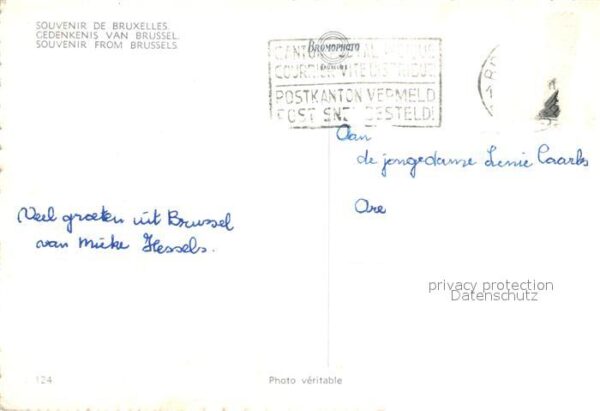 SOUVENIR DE BRUXELLES.
GEDENKENIS VAN BRUSSEL.
SOUVENIR FROM BRUSSELS.
BROMOPHOTO
COURRIER VITE DISTRIBUE
POSTKANTON VERMELD
POST SNEL BESTELD!
Aan
de jongedame Lenie
Veel groeten uit Brussel
van Mieke Hessels.
privacy protection
Datenschutz
124
Photo véritable